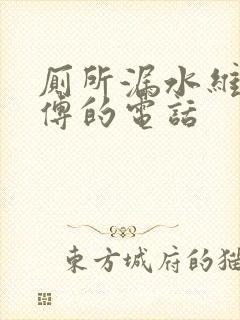 廁所漏水維
傅的電話
東方城府的貓